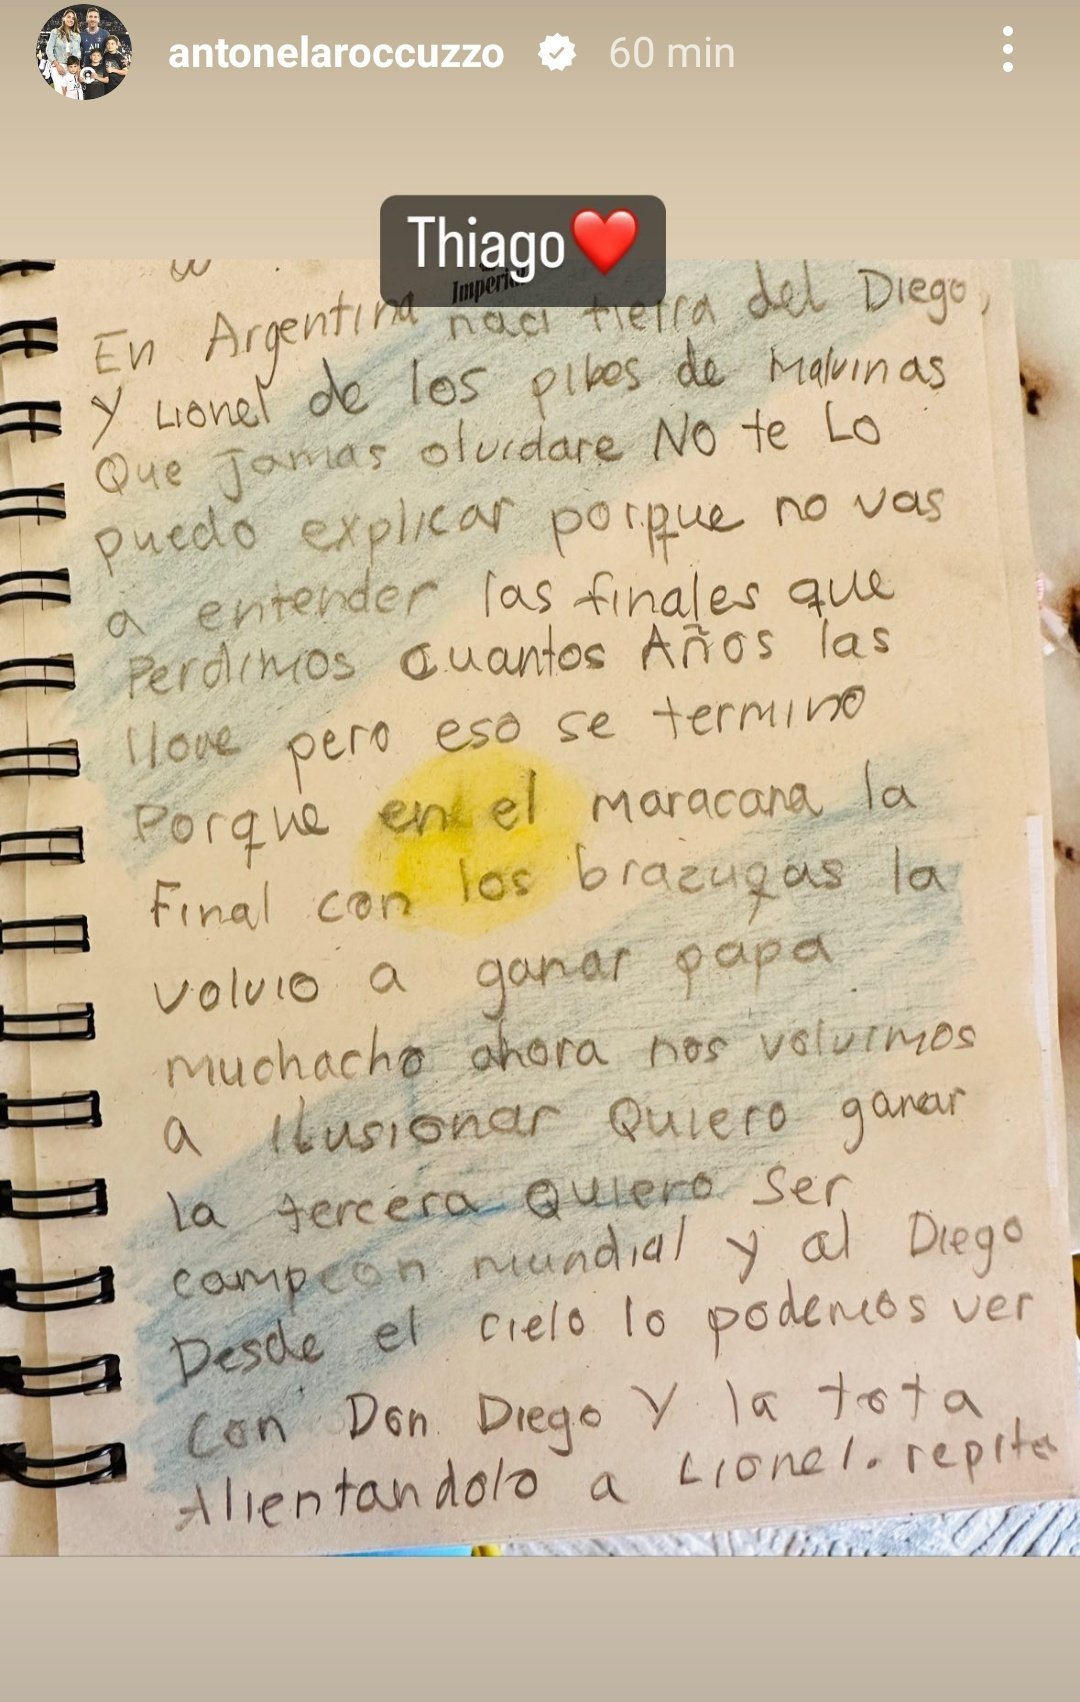 antonelaroccuzzo 60 min
Thiago❤️
En Argentina naci tierra del Diego,
y Lionel de los pibes de Malvinas
Que Jamas olvidare NO te Lo
puedo explicar porque no vas
a entender las finales que
Perdimos cuantos Años las
llore pero eso se termino
Porque en el maracana la
Final con los brazugas la
volvio a ganar papa
muchacho ahora nos volvimos
a ilusionar Quiero ganar
la tercera Quiero Ser
campeon mundial y al Diego
Desde el cielo lo podemos ver
con Don Diego y la tota
Alientandolo a Lionel. repite